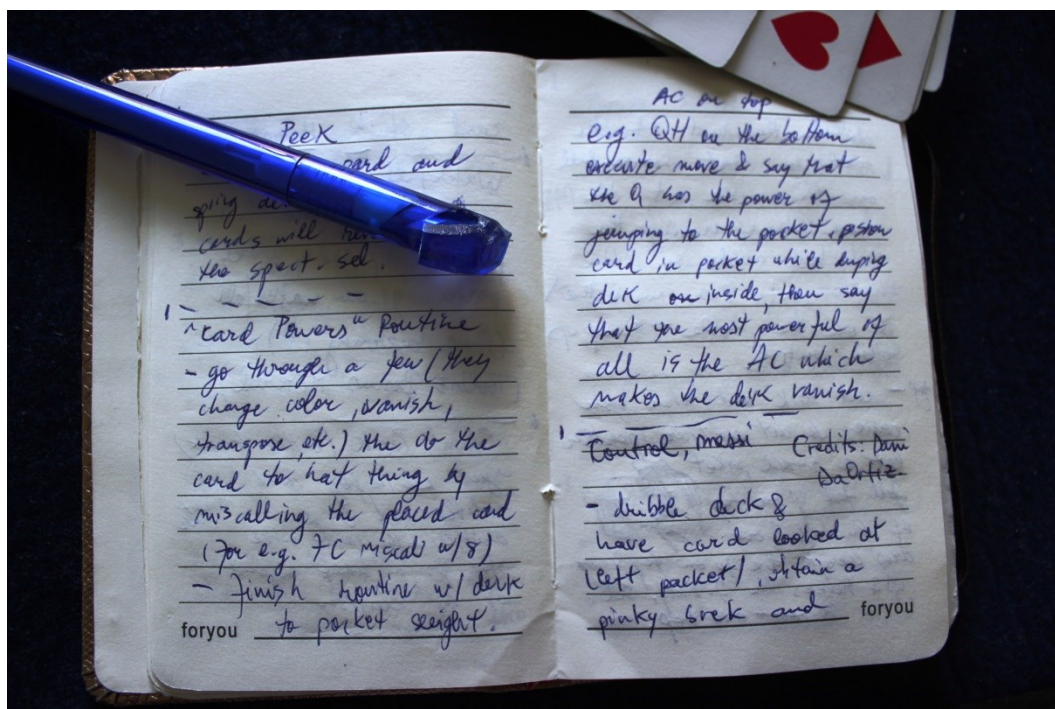 Peek
card and
spring de
cards will
the spect. sel.
"Card Powers" Routine
- go through a few (they
change color, vanish,
transpose, etc.) the do the
card to hat thing by
miscalling the placed card
(for e.g. 7C miscall w/8)
- Finish routine w/ deck
to pocket sleight.
foryou
AC on top
e.g. QH on the bottom
execute move & say that
the Q has the power of
jumping to the pocket,
card in pocket while
deck on inside, then say
that the most powerful of
all is the AC which
makes the deck vanish.
Control, messi Credits: Dani
DaOrtiz.
- dribble deck &
have card looked at
(left packet), obtain a
pinky brek and
foryou